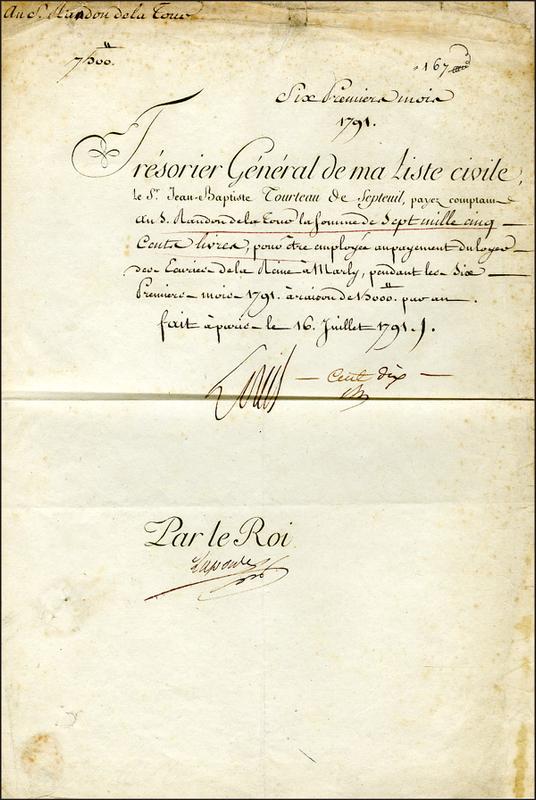 Au S. Randon de la Tour
7500.ᴸ
167
Six Premiers mois
1791.
Trésorier Général de ma Liste civile,
le Sr. Jean-Baptiste Tourteau de Septeuil, payez comptant
au S. Randon de la Tour la somme de Sept mille cinq
Cents livres, pour être employée au payement du loyer
des Ecuries de la Reine à Marly, pendant les Six
Premiers mois 1791. à raison de 15000.ᴸ par an.
fait à paris le 16. Juillet 1791.
Louis
Cent dix
Par le Roi
Laporte